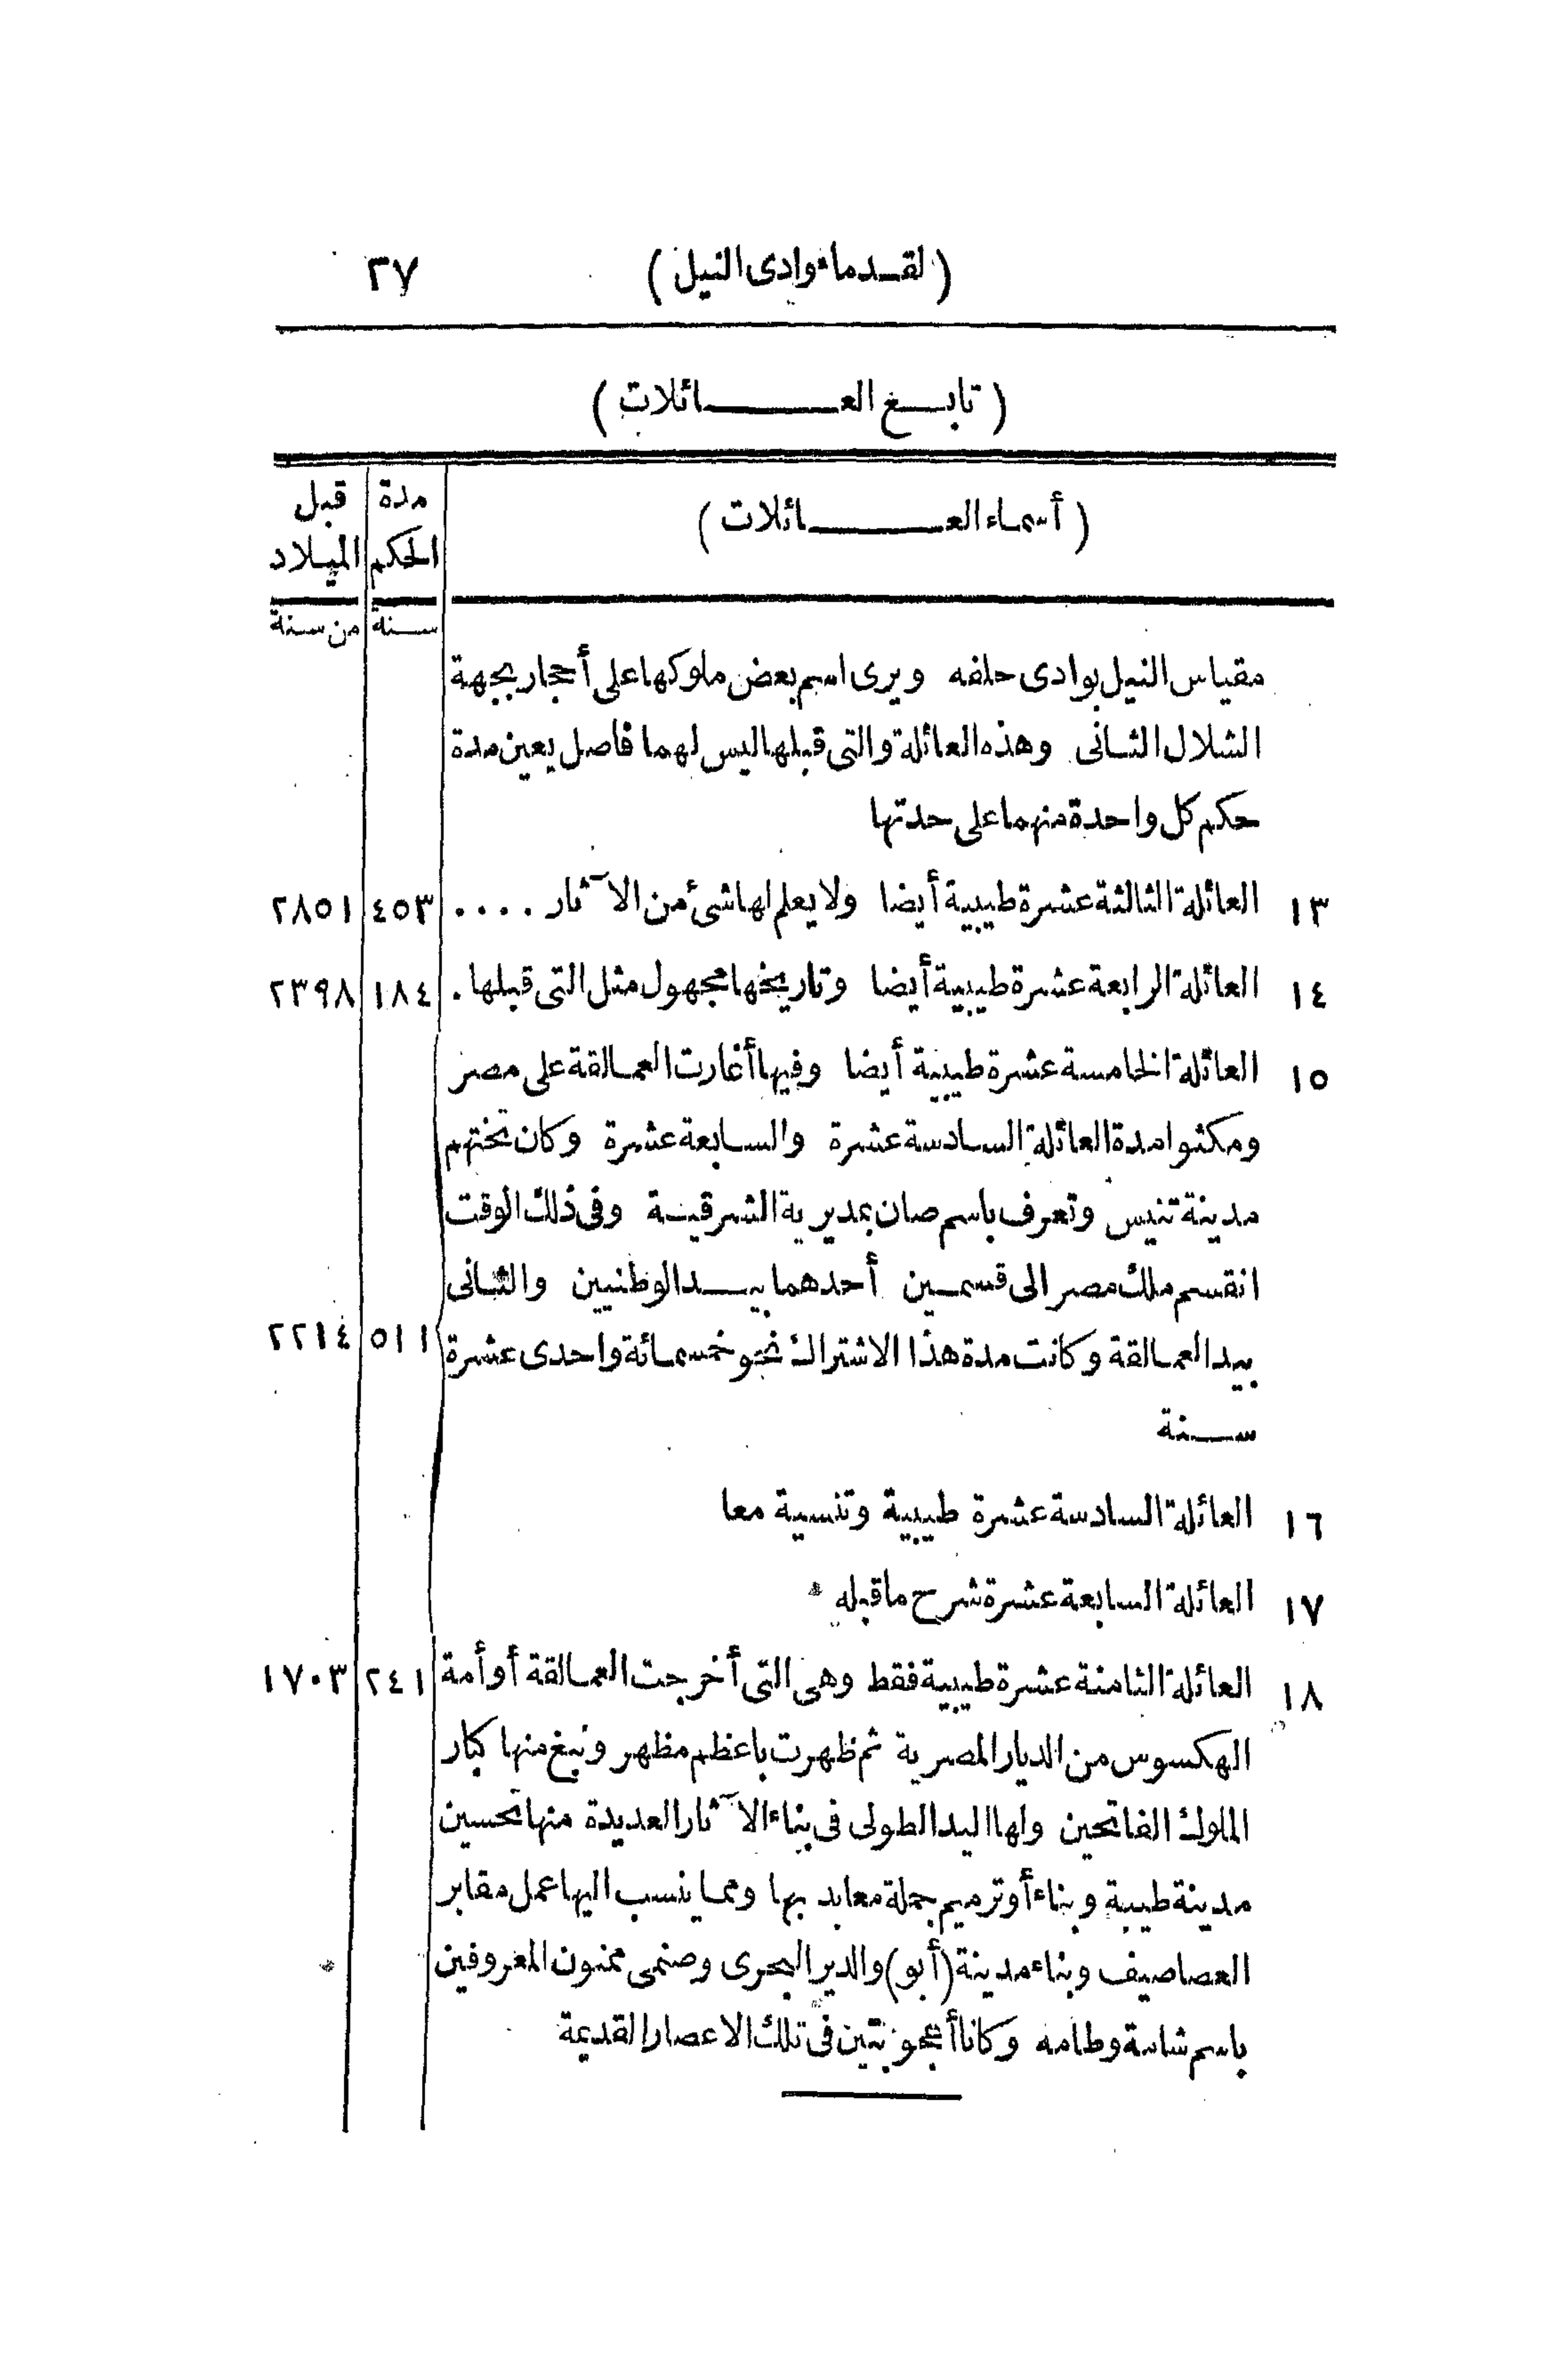 (لقدماء وادى النيل) ٣٧
(تابع العائلات)
(أسماء العائلات) مدة الحكم قبل الميلاد
سنة من سنة
مقياس النيل بوادى حلفه ويرى اسم بعض ملوكها على أحجار بجهة
الشلال الثانى وهذه العائلة والتى قبلها ليس لهما فاصل يعين مدة
حكم كل واحدة منهما على حدتها
١٣ العائلة الثالثة عشرة طيبية أيضا ولا يعلم لها شئ من الآثار .... ٤٥٣ ٢٨٥١
١٤ العائلة الرابعة عشرة طيبية أيضا وتاريخها مجهول مثل التى قبلها . ١٨٤ ٢٣٩٨
١٥ العائلة الخامسة عشرة طيبية أيضا وفيها أغارت العمالقة على مصر
ومكثوا مدة العائلة السادسة عشرة والسابعة عشرة وكان تختهم
مدينة تنيس وتعرف باسم صان بمديرية الشرقية وفى ذلك الوقت
انقسم ملك مصر الى قسمين أحدهما بيد الوطنيين والثانى
بيد العمالقة وكانت مدة هذا الاشتراك نحو خمسمائة واحدى عشرة ٥١١ ٢٢١٤
سنة
١٦ العائلة السادسة عشرة طيبية وتنسية معا
١٧ العائلة السابعة عشرة شرح ما قبله
١٨ العائلة الثامنة عشرة طيبية فقط وهى التى أخرجت العمالقة أو أمة ٢٤١ ١٧٠٣
الهكسوس من الديار المصرية ثم ظهرت باعظم مظهر ونبغ منها كبار
الملوك الفاتحين ولها اليد الطولى فى بناء الآثار العديدة منها تحسين
مدينة طيبة وبناء أو ترميم جملة معابد بها ومما ينسب اليها عمل مقابر
العصاصيف وبناء مدينة (أبو) والدير البحرى وصنمى ممنون المعروفين
باسم شامة وطامه وكانا أعجوبتين فى تلك الاعصار القديمة